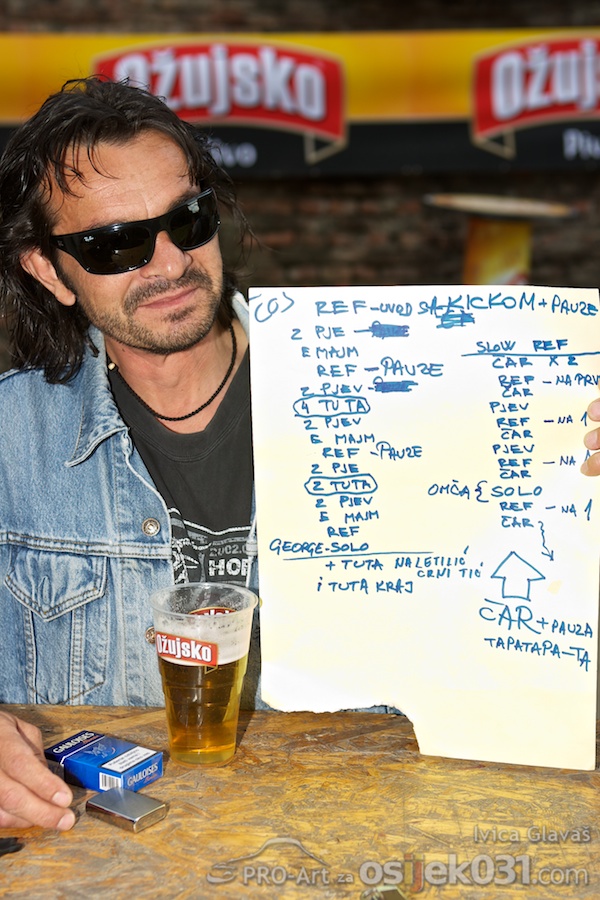 Ožujsko
Ožujsko
Pivo
Ray-Ban
REF - UVOD SA KICKOM + PAUZE
2 PJE -
E MAJM
REF - PAUZE
2 PJEV -
4 TUTA
2 PJEV
E MAJM
REF - PAUZE
2 PJE
2 TUTA
2 PJEV
E MAJM
REF
GEORGE-SOLO
+ TUTA NA LETILIĆ
CRNI TIĆ
I TUTA KRAJ
SLOW REF
ČAR X 2
REF - NA PRV
ČAR
PJEV
REF - NA 1
ČAR
PJEV
REF - NA 1
ČAR
OMČA { SOLO
REF - NA 1
ČAR
ČAR + PAUZA
TAPATAPA-TA
2002.
HOF
Ožujsko
GAULOISES
GAULOISES
Ivica Glavaš
PRO-Art za osijek031.com